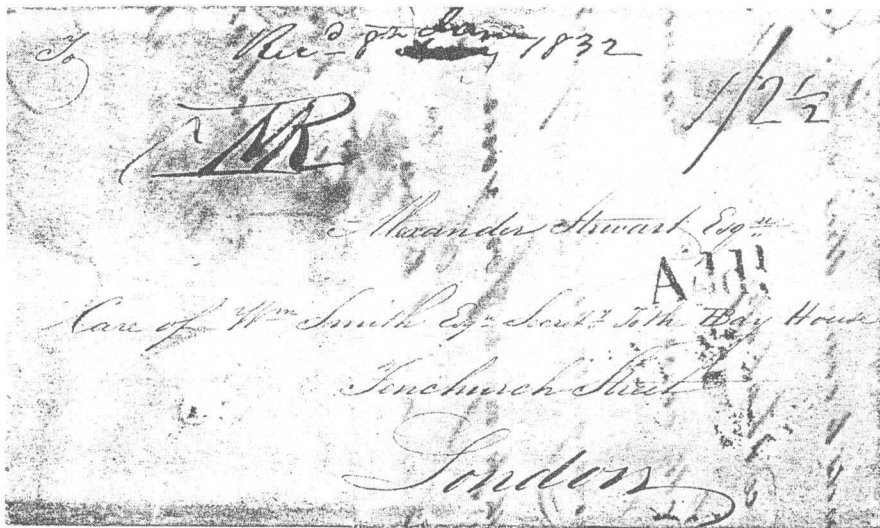 To
Rec^d 8th Jany 1832
1/2½
Alexander Stewart Esq^re
A
Care of W^m Smith Esq^re Secret^y To the HBay House
Fenchurch Street
London